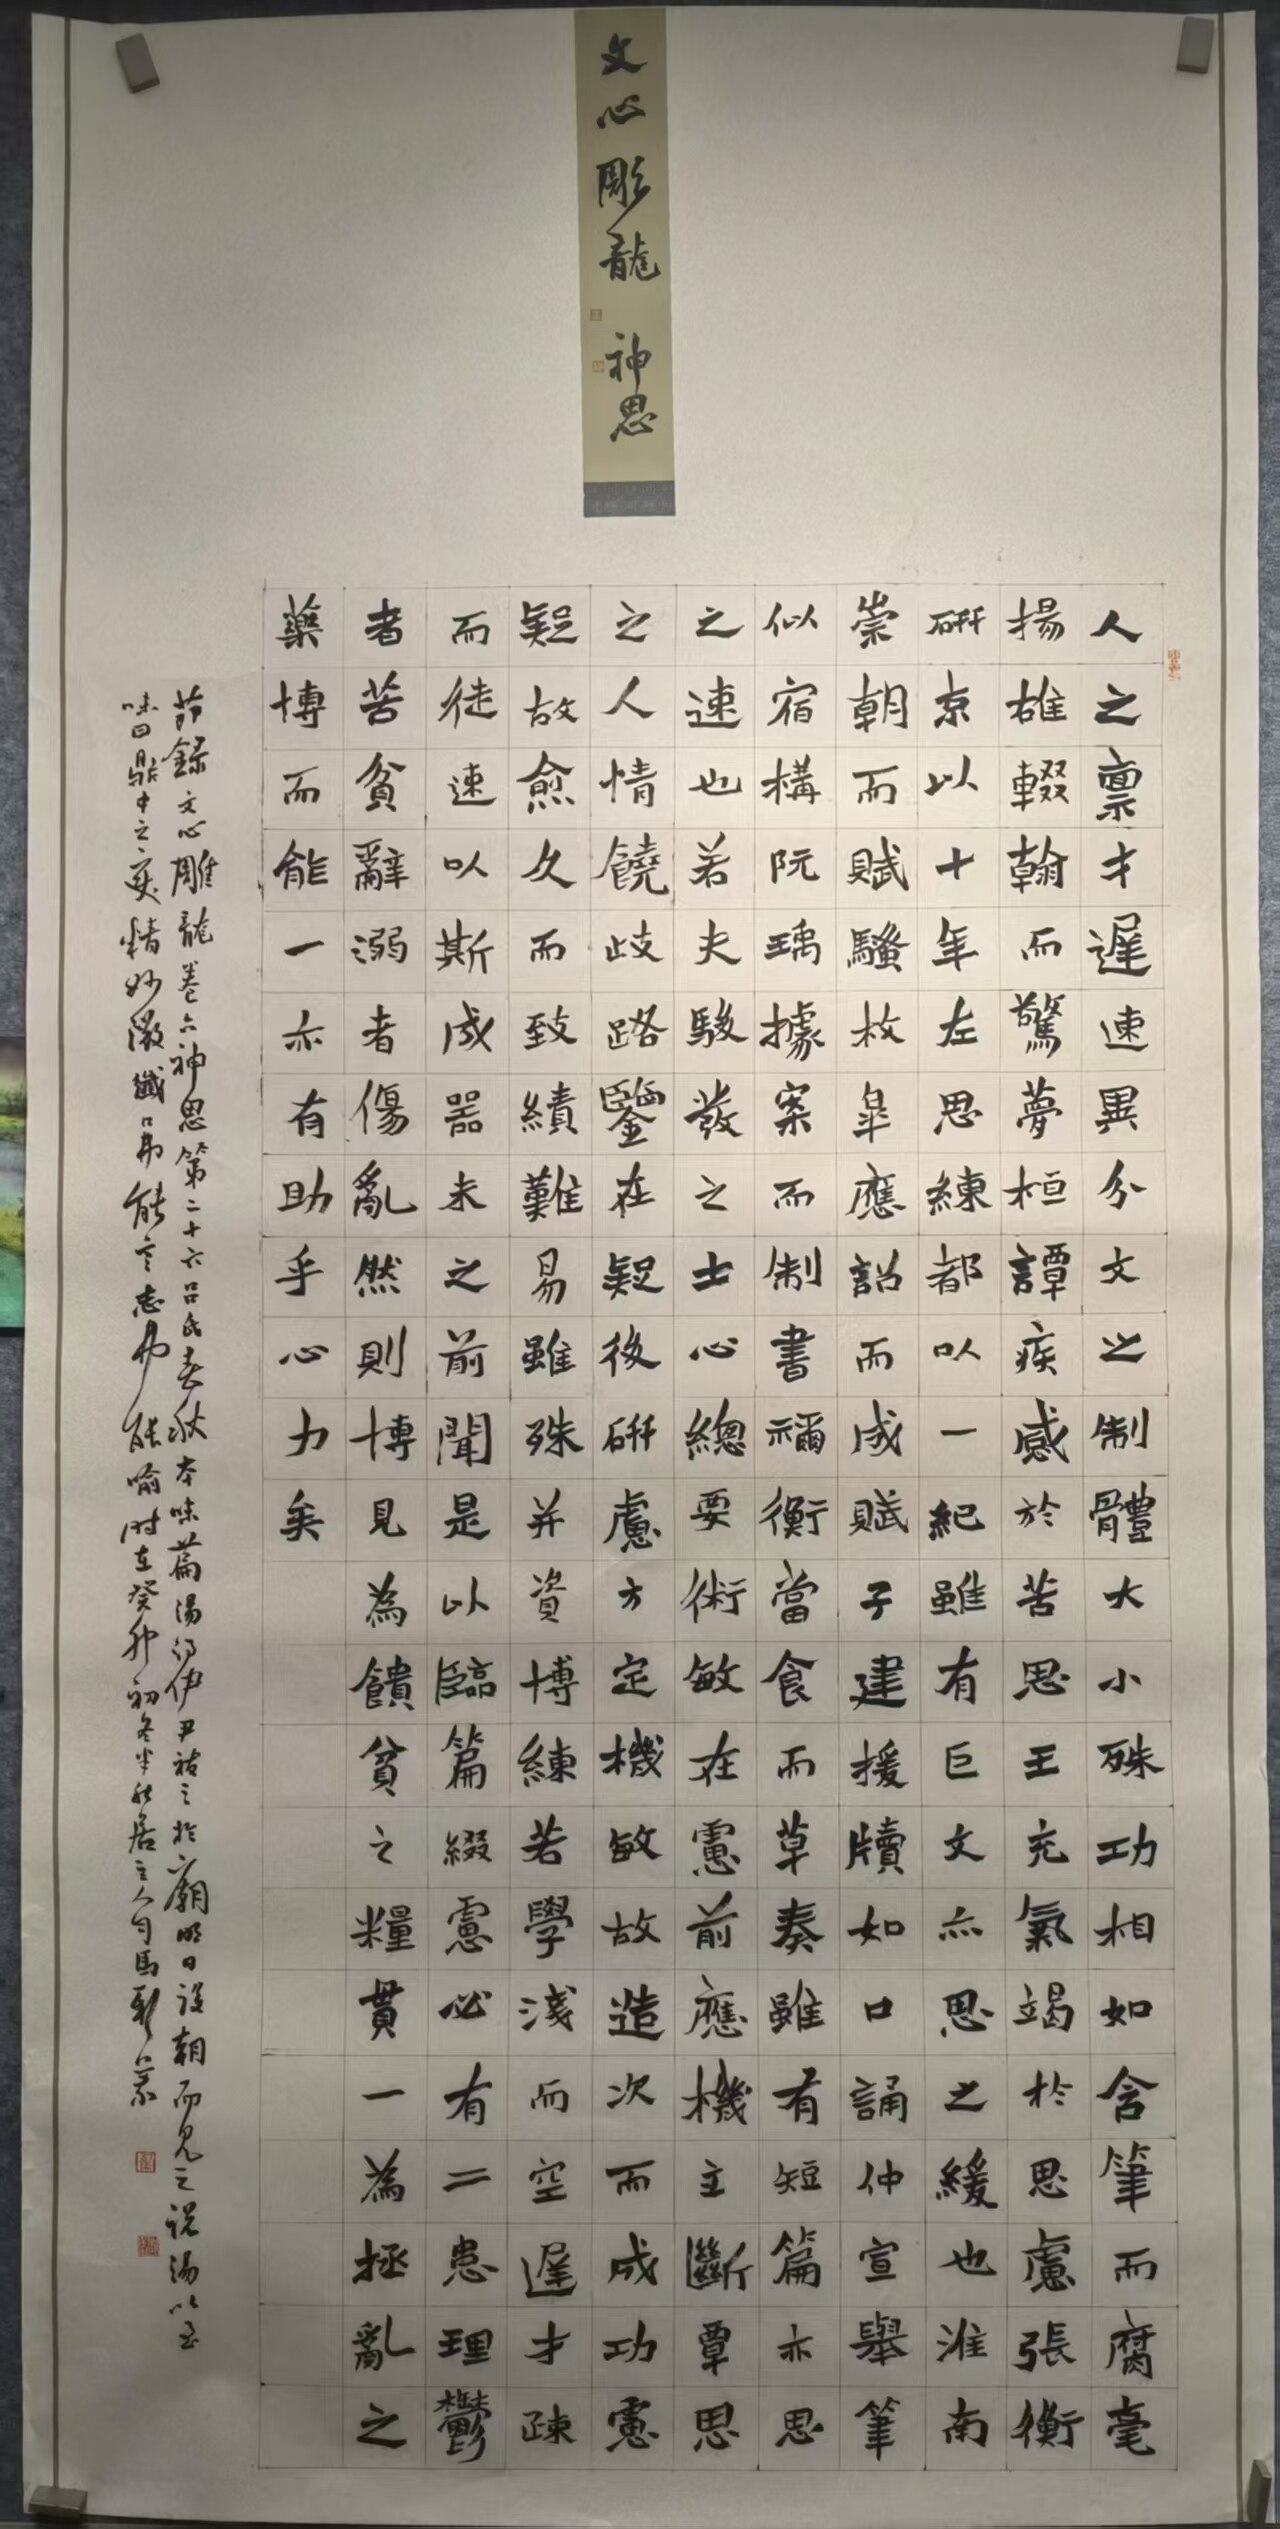 文心彫龍 神思
人之禀才遲速異分文之制體大小殊功相如含筆而腐毫
揚雄輟翰而驚夢桓譚疾感於苦思王充氣竭於思慮張衡
研京以十年左思練都以一紀雖有巨文亦思之緩也淮南
崇朝而賦騷枚皐應詔而成賦子建援牘如口誦仲宣舉筆
似宿構阮瑀據案而制書禰衡當食而草奏雖有短篇亦思
之速也若夫駿發之士心總要術敏在慮前應機主斷覃思
之人情饒歧路鑒在疑後研慮方定機敏故造次而成功慮
疑故愈久而致績難易雖殊并資博練若學淺而空遲才疎
而徒速以斯成器未之前聞是以臨篇綴慮必有二患理鬱
者苦貧辭溺者傷亂然則博見為饋貧之糧貫一為拯亂之
藥博而能一亦有助乎心力矣
節錄文心雕龍卷六神思第二十六呂氏春秋本味篇湯得伊尹祓之於廟明日設朝而見之説湯以至
味曰鼎中之變精妙微纖口弗能言志弗能喻時在癸卯初冬半居主人司馬